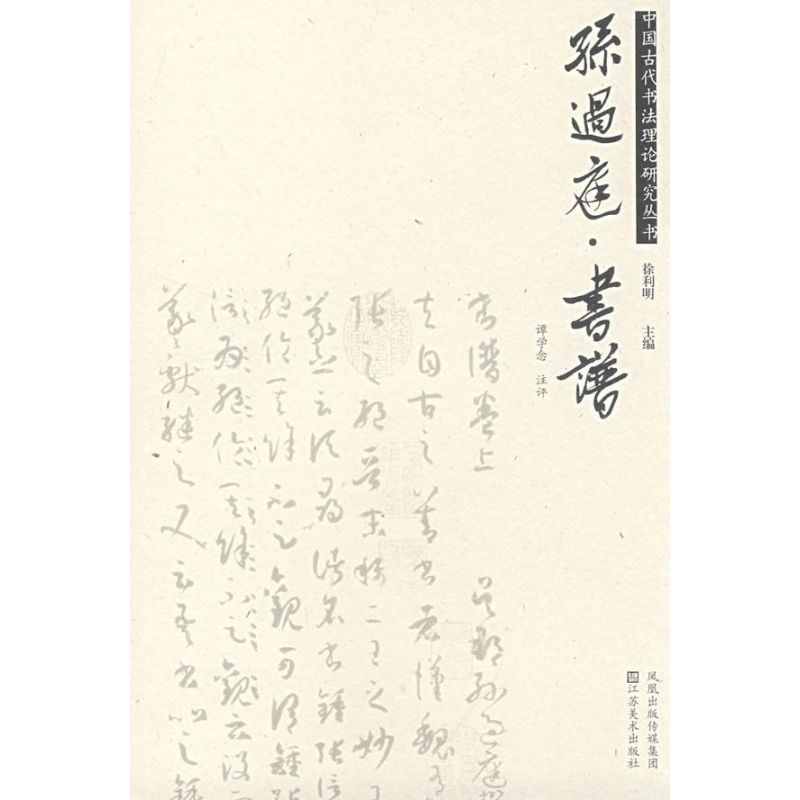 中国古代书法理论研究丛书
徐利明 主编
孫過庭·書譜
谭学念 注评
書譜卷上 吳郡孫過庭撰
夫自古之善書者漢魏有
張之絕晉末稱二王之妙王
羲之云頃尋諸名書鍾張信
絕倫其餘不足觀可謂鍾張
為絕倫其餘不足觀云沒
羲獻繼之又云吾書比之鍾
凤凰出版传媒集团
江苏美术出版社